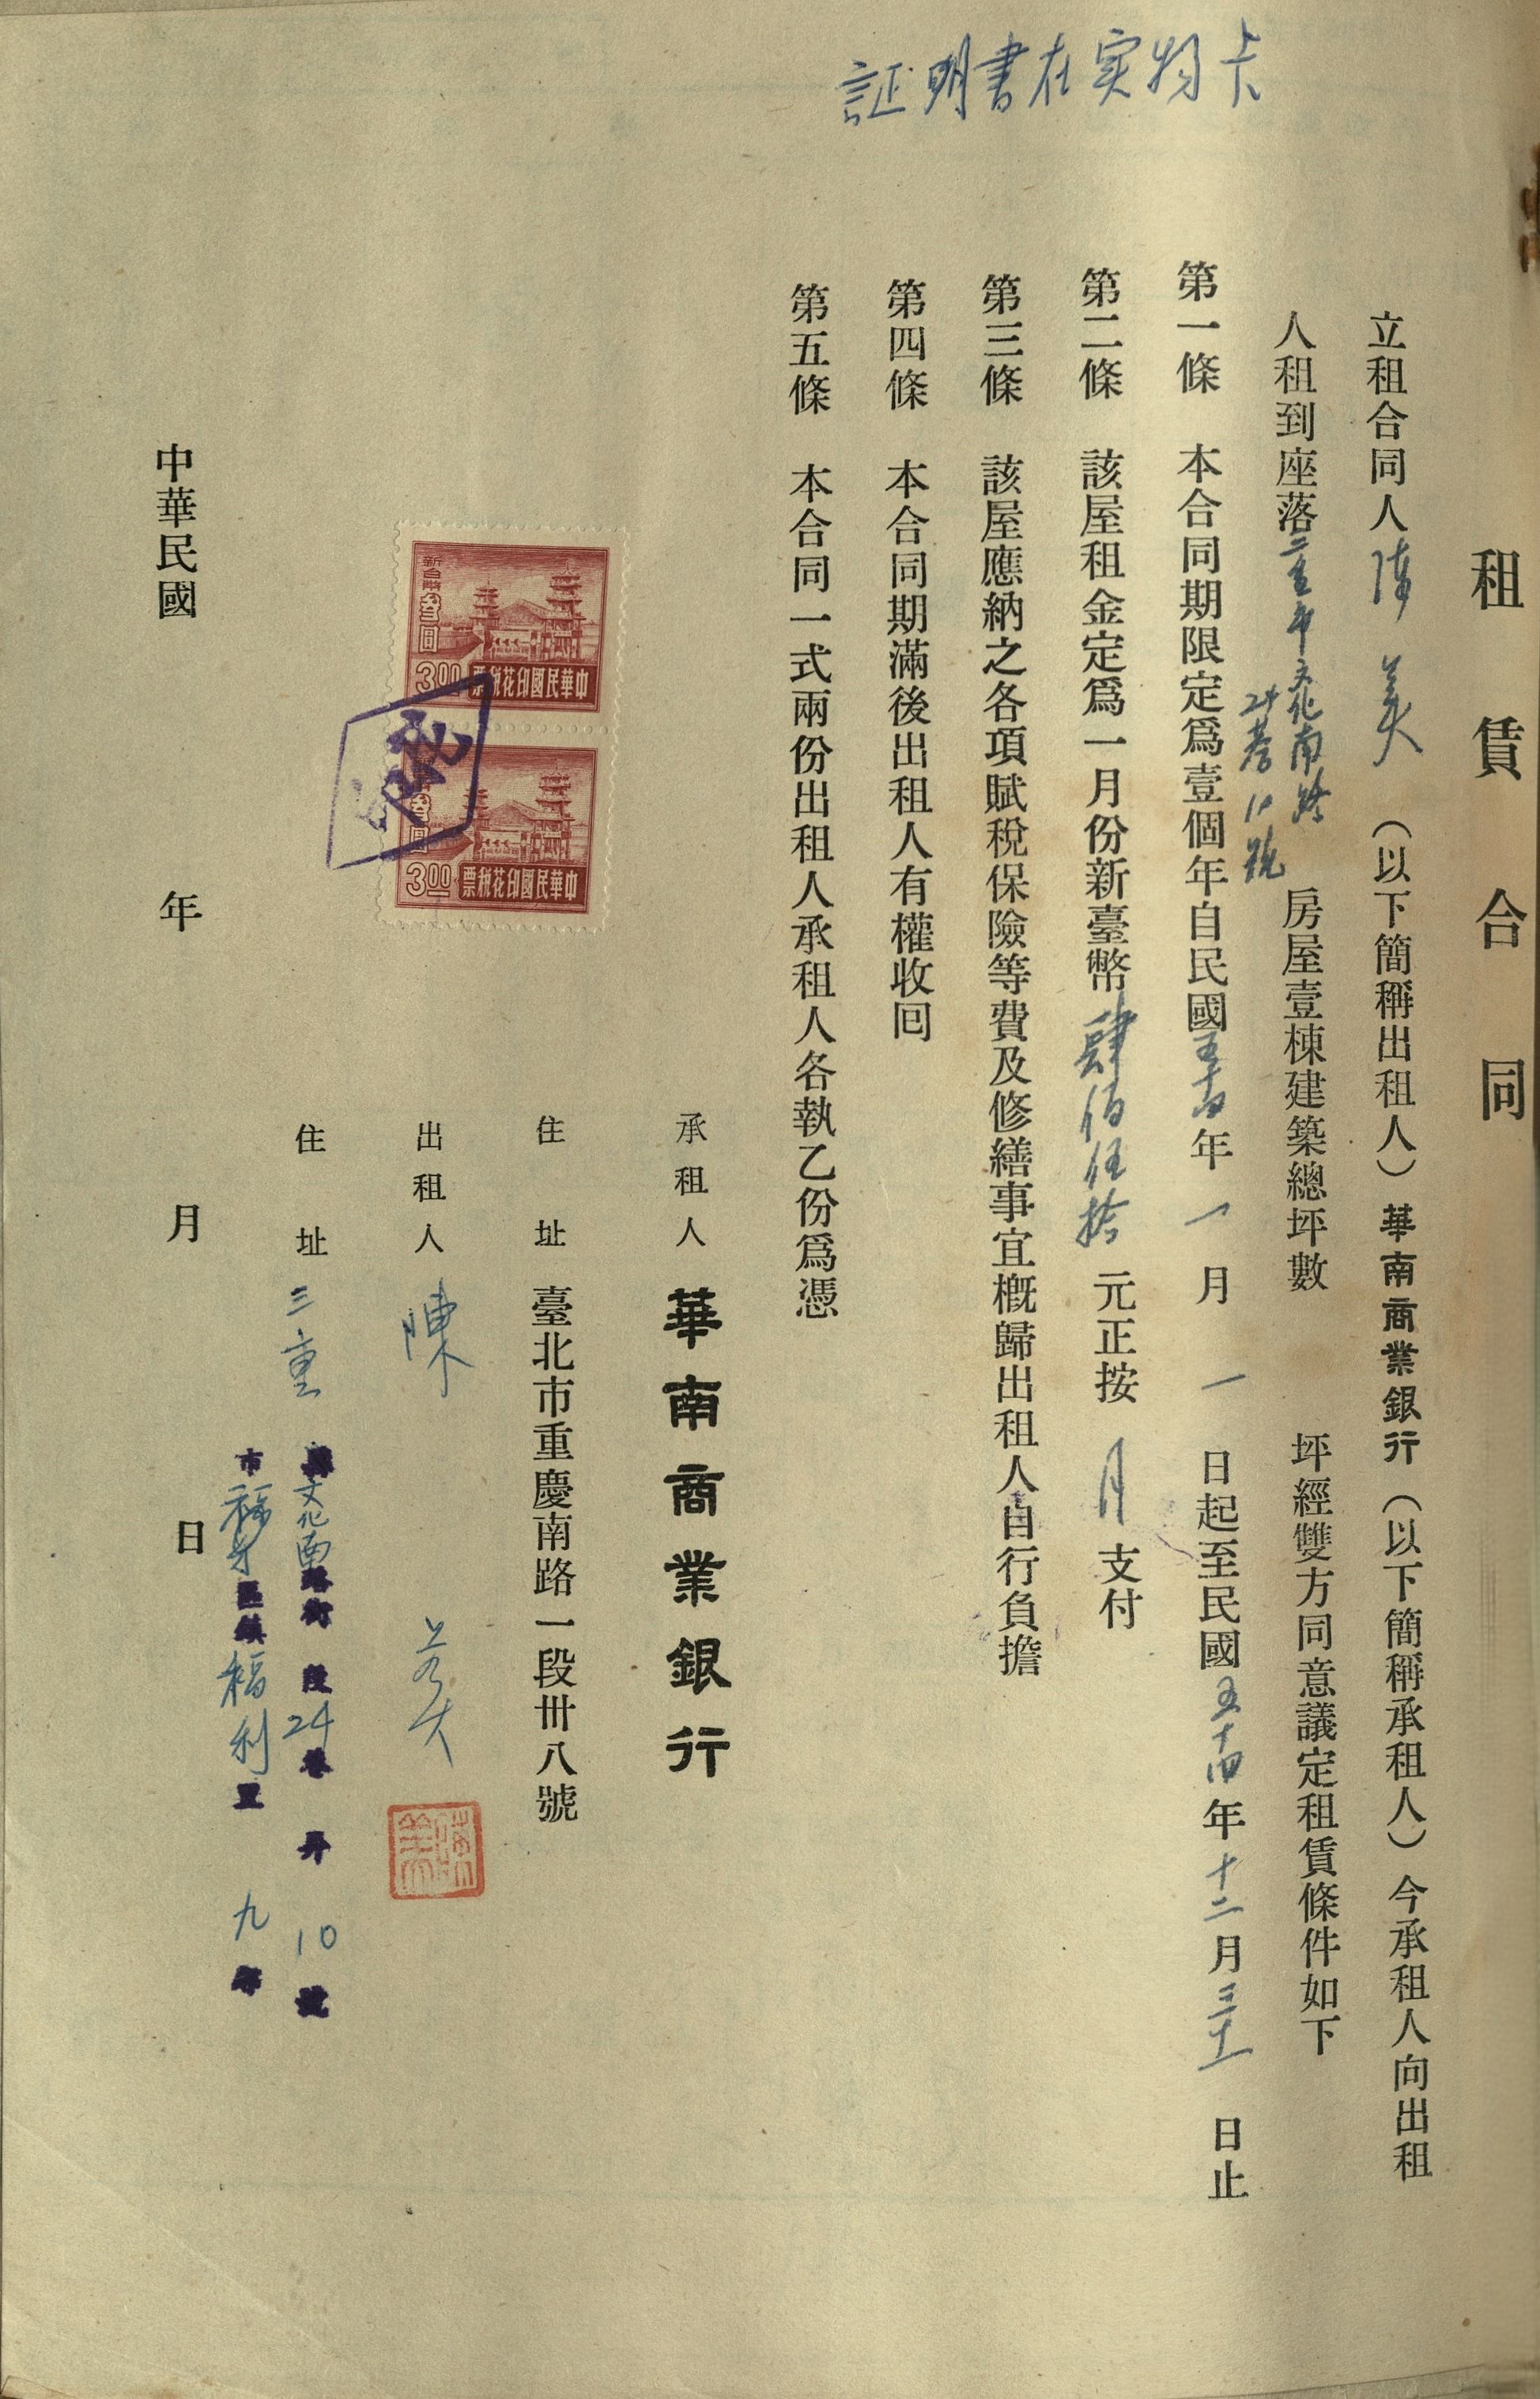 証明書在実物卡
租賃合同
立租合同人陳美（以下簡稱出租人）華南商業銀行（以下簡稱承租人）今承租人向出租
人租到座落三重市文化南路24巷10號房屋壹棟建築總坪數 坪經雙方同意議定租賃條件如下
第一條 本合同期限定爲壹個年自民國五十四年一月一日起至民國五十四年十二月三十一日止
第二條 該屋租金定爲一月份新臺幣肆佰伍拾元正按月支付
第三條 該屋應納之各項賦稅保險等費及修繕事宜概歸出租人自行負擔
第四條 本合同期滿後出租人有權收回
第五條 本合同一式兩份出租人承租人各執乙份爲憑
承租人 華南商業銀行
住址 臺北市重慶南路一段卅八號
出租人 陳美
住址 三重縣文化南路街段24巷弄10號
市福 區鎮福利里九鄰
新台幣叁圓
3.00 中華民國印花稅票
叁圓
3.00 中華民國印花稅票
中華民國 年 月 日